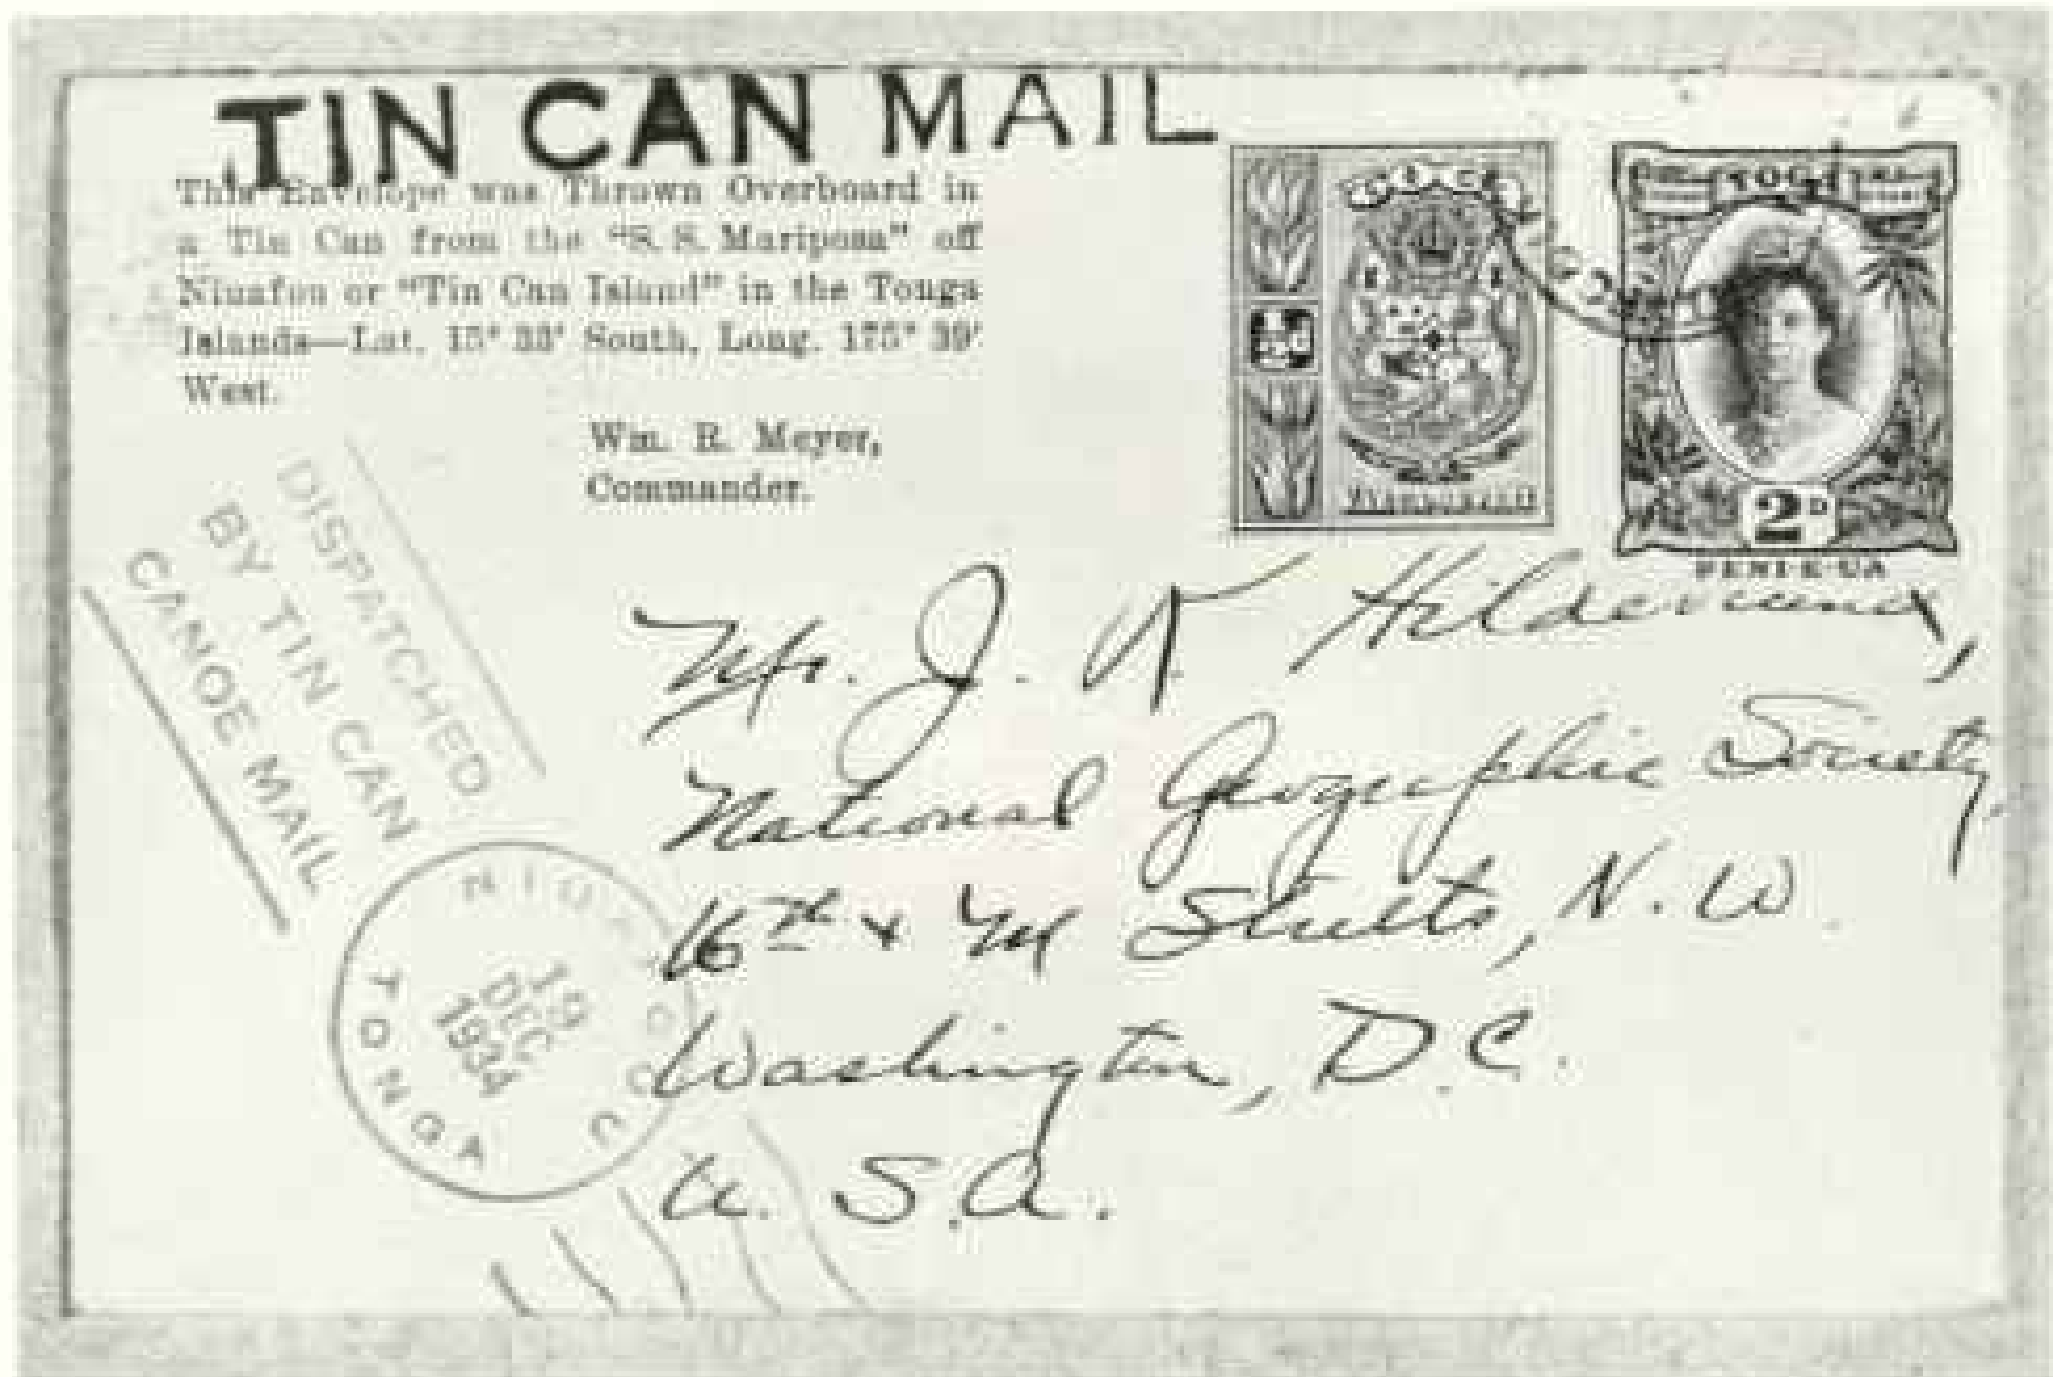 TIN CAN MAIL
This Envelope was Thrown Overboard in
a Tin Can from the "S. S. Mariposa" off
Niuafou or "Tin Can Island" in the Tonga
Islands—Lat. 15° 33' South, Long. 175° 39'
West.
Wm. R. Meyer,
Commander.
TOGA
2D
PENI-E-UA
DISPATCHED
BY TIN CAN
CANOE MAIL
Mr. J. R. Hildebrand,
National Geographic Society,
16th & M Streets, N. W.
Washington, D. C.
U. S. A.
19
DEC
1934
TONGA